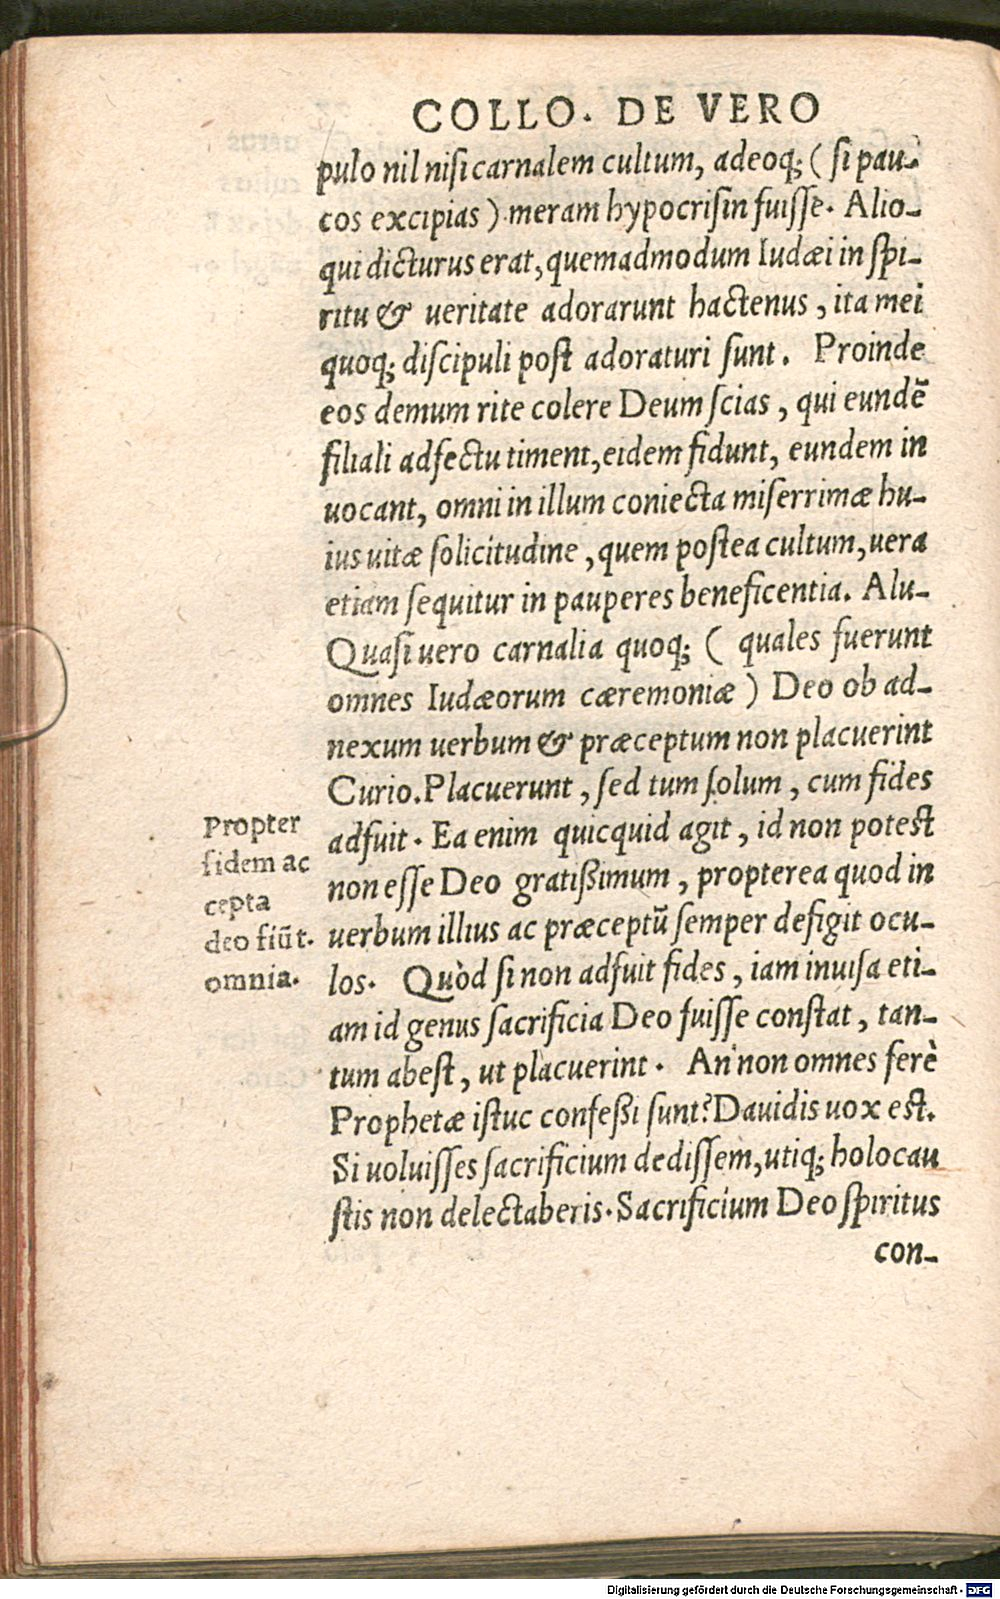 COLLO. DE VERO
pulo nil nisi carnalem cultum, adeoq; ( si pau-
cos excipias ) meram hypocrisin fuisse. Alio-
qui dicturus erat, quemadmodum Iudæi in spi-
ritu & ueritate adorarunt hactenus, ita mei
quoq; discipuli post adoraturi sunt. Proinde
eos demum rite colere Deum scias, qui eundẽ
filiali adfectu timent, eidem fidunt, eundem in
uocant, omni in illum coniecta miserrimæ hu-
ius uitæ solicitudine, quem postea cultum, uera
etiam sequitur in pauperes beneficentia. Alu-
Quasi uero carnalia quoq; ( quales fuerunt
omnes Iudæorum cæremoniæ ) Deo ob ad-
nexum uerbum & præceptum non placuerint
Curio. Placuerunt, sed tum solum, cum fides
adfuit. Ea enim quicquid agit, id non potest
non esse Deo gratißimum, propterea quod in
uerbum illius ac præceptũ semper defigit ocu-
los. Quòd si non adfuit fides, iam inuisa eti-
am id genus sacrificia Deo fuisse constat, tan-
tum abest, ut placuerint. An non omnes ferè
Prophetæ istuc confeßi sunt? Dauidis uox est.
Si uoluisses sacrificium dedissem, utiq; holocau
stis non delectaberis. Sacrificium Deo spiritus
con-
Propter
fidem ac
cepta
deo fiũt.
omnia.
Digitalisierung gefördert durch die Deutsche Forschungsgemeinschaft - DFG